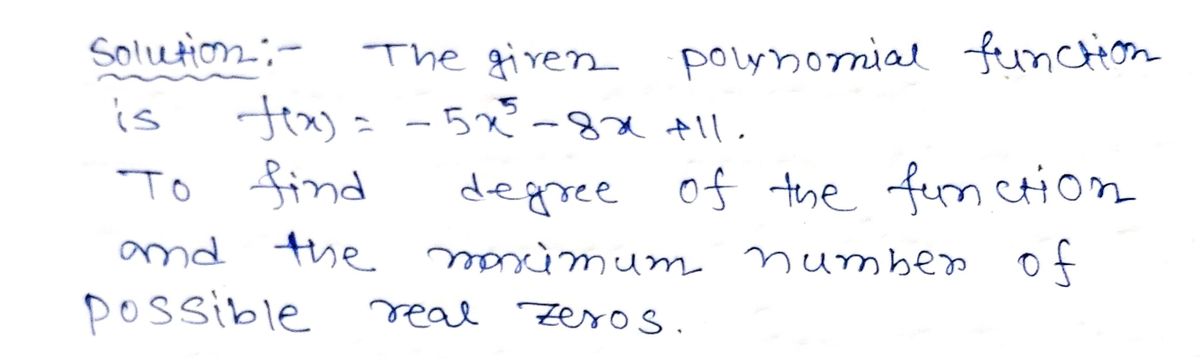 Solution:- The given polynomial function
is f(x) = -5x⁵ - 8x +11.
To find degree of the function
and the maximum number of
possible real zeros.